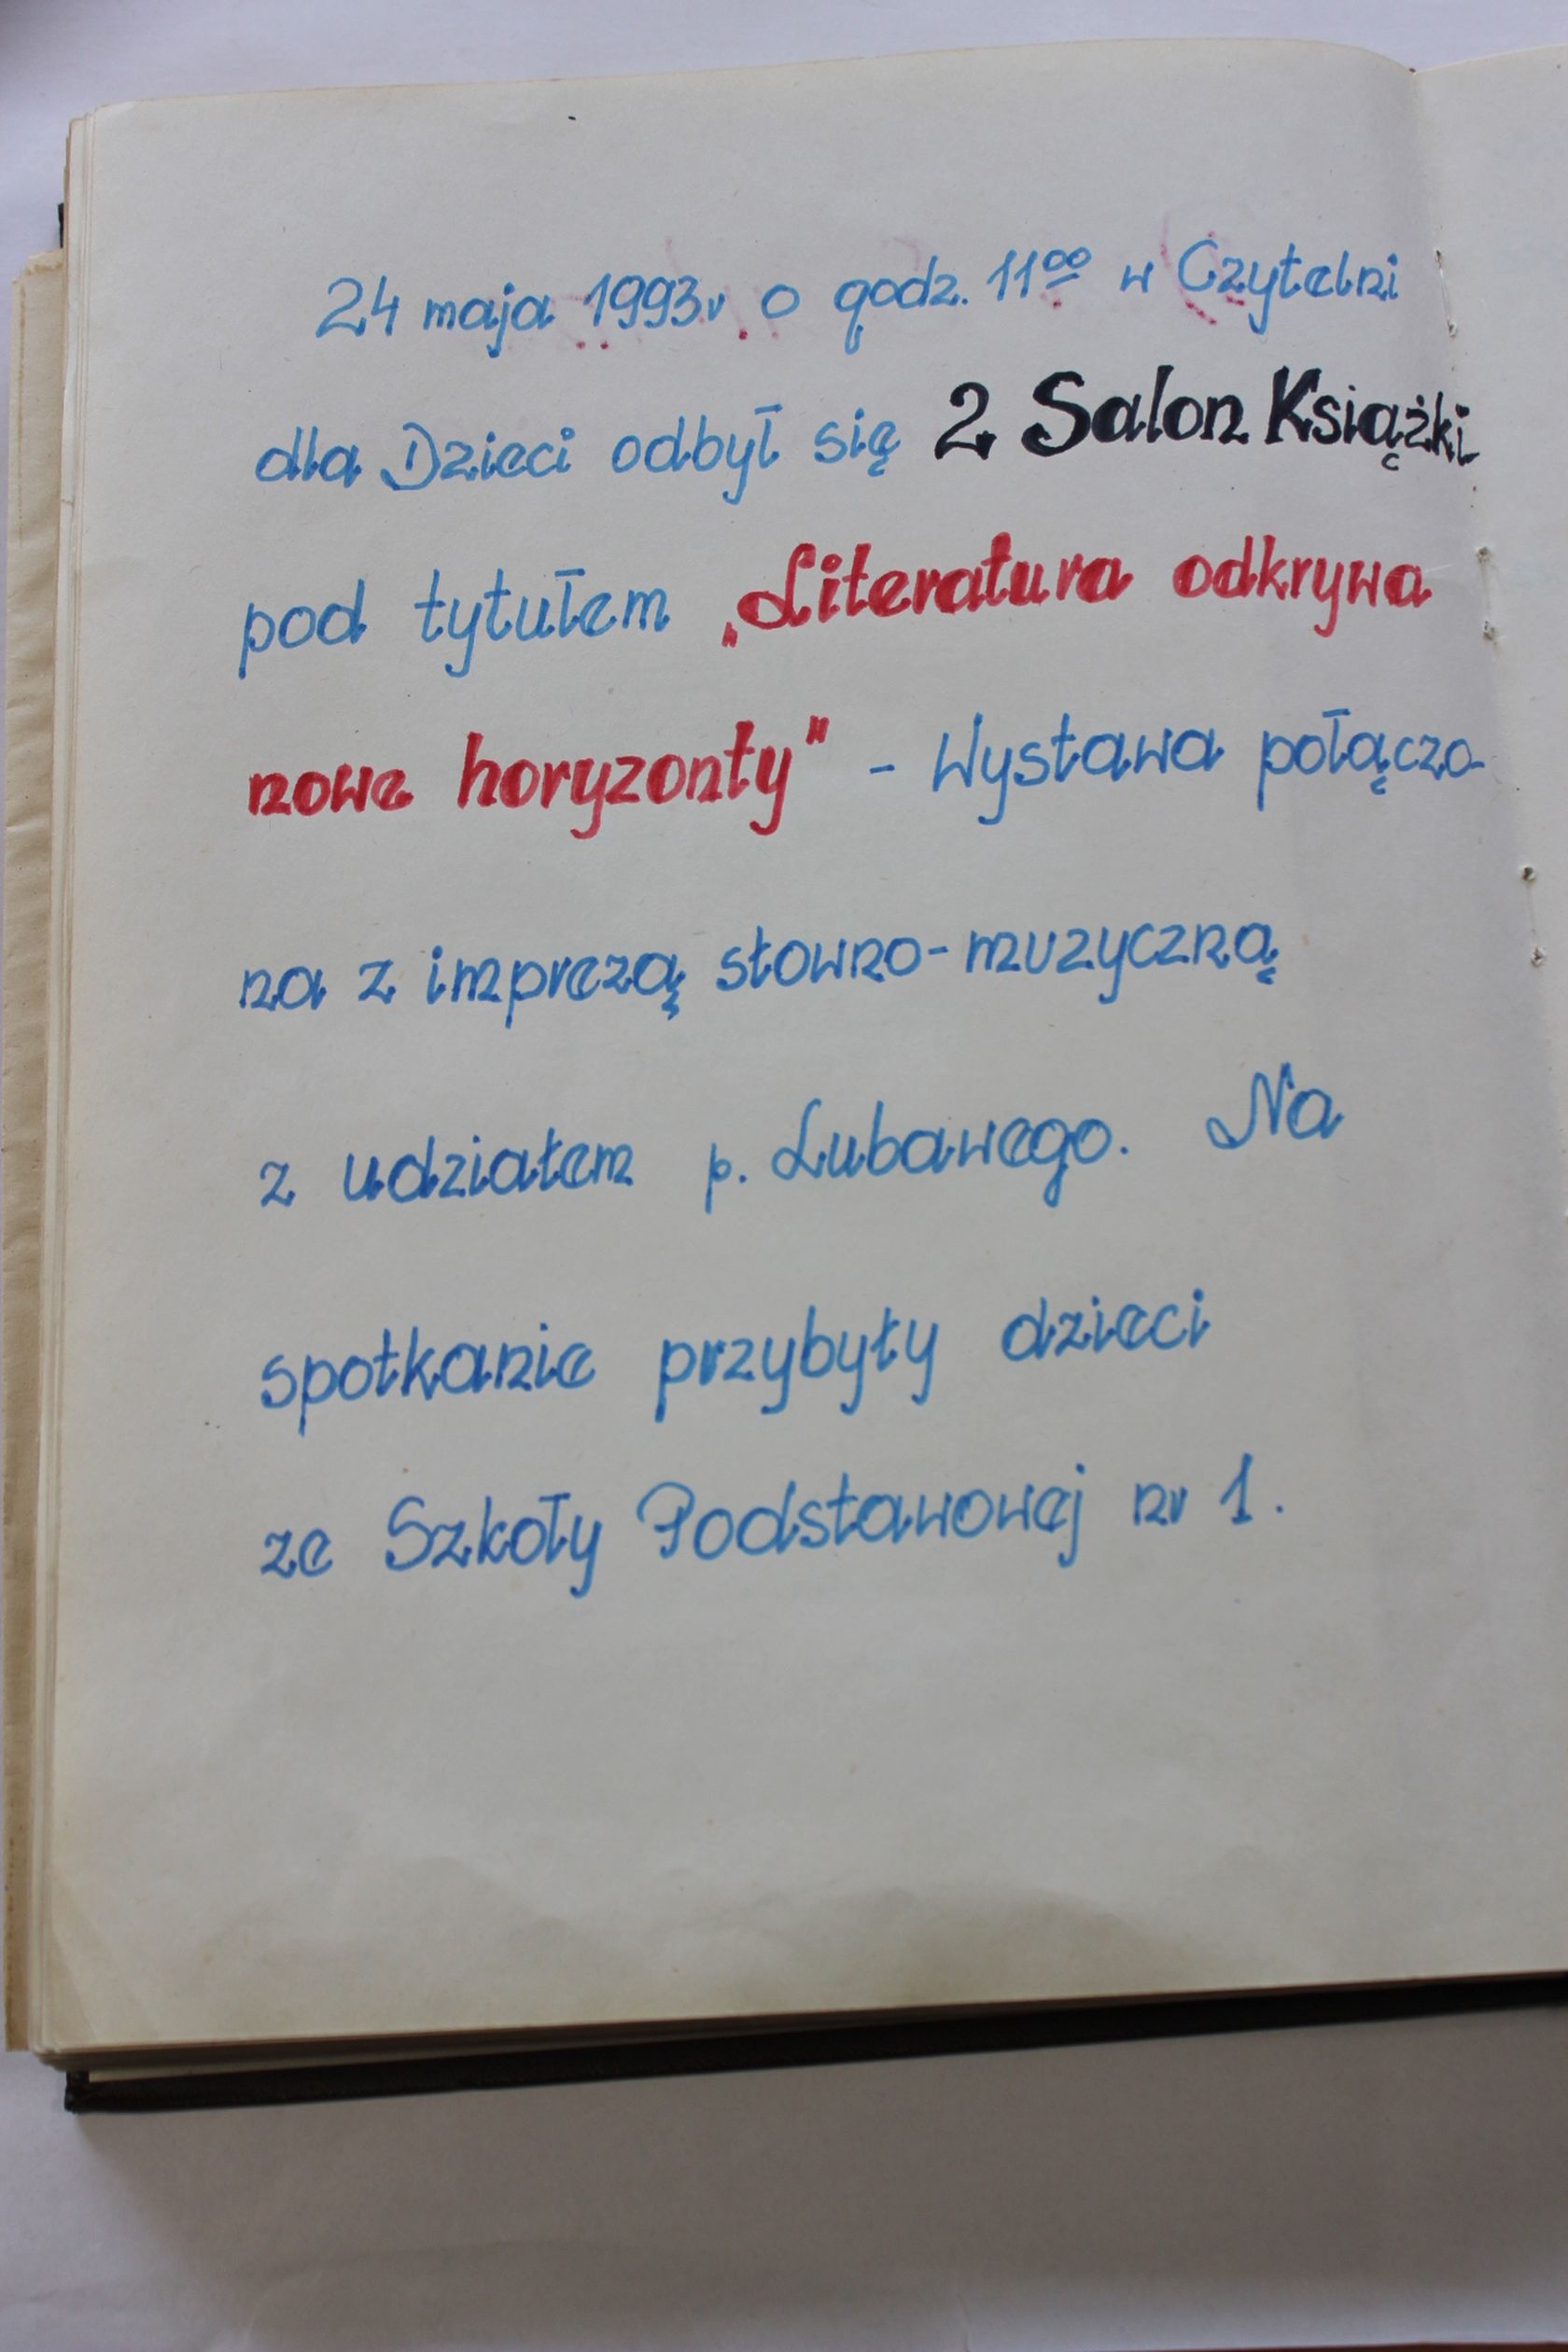 24 maja 1993r. o godz. 11⁰⁰ w Czytelni
dla Dzieci odbył się 2 Salon Książki
pod tytułem „Literatura odkrywa
nowe horyzonty" - Wystawa połączo-
na z imprezą słowno-muzyczną
z udziałem p. Lubawego. Na
spotkanie przybyły dzieci
ze Szkoły Podstawowej nr 1.